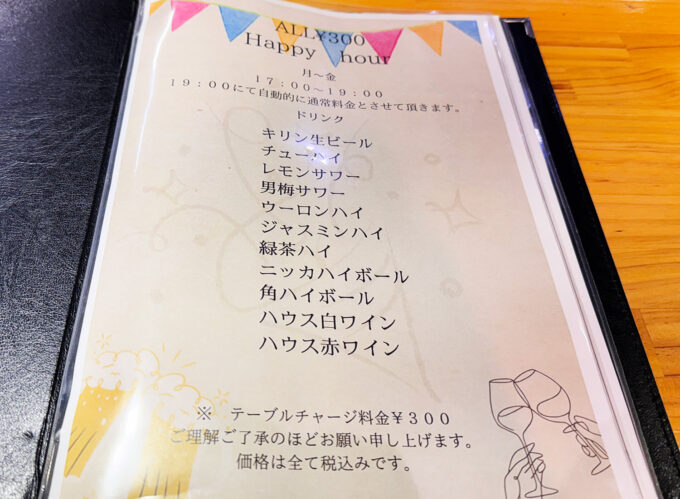 ALL¥300
Happy hour
月～金
17：00～19：00
19：00にて自動的に通常料金とさせて頂きます。
ドリンク
キリン生ビール
チューハイ
レモンサワー
男梅サワー
ウーロンハイ
ジャスミンハイ
緑茶ハイ
ニッカハイボール
角ハイボール
ハウス白ワイン
ハウス赤ワイン
※ テーブルチャージ料金￥３００
ご理解ご了承のほどお願い申し上げます。
価格は全て税込みです。